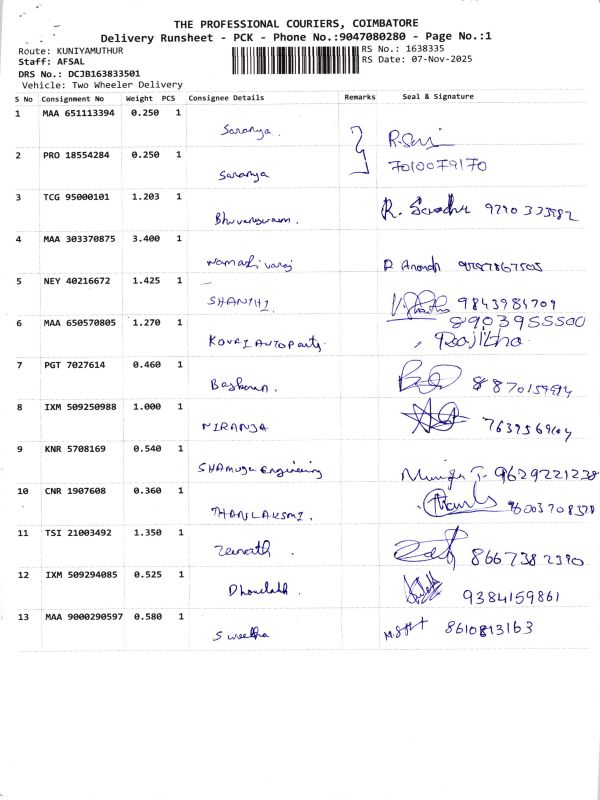 THE PROFESSIONAL COURIERS, COIMBATORE
Delivery Runsheet - PCK - Phone No.:9047080280 - Page No.:1
Route: KUNIYAMUTHUR RS No.: 1638335
Staff: AFSAL RS Date: 07-Nov-2025
DRS No.: DCJB163833501
Vehicle: Two Wheeler Delivery
S No Consignment No Weight PCS Consignee Details Remarks Seal & Signature
1 MAA 651113394 0.250 1
Saranya.
2 PRO 18554284 0.250 1 7010079170
Saranya
3 TCG 95000101 1.203 1
4 MAA 303370875 3.400 1
5 NEY 40216672 1.425 1
SHANTHI. 9843984709
6 MAA 650570805 1.270 1 8903955500
KOVAI AUTO Parts. Rajitha
7 PGT 7027614 0.460 1
Baskaran.
8 IXM 509250988 1.000 1
NIRANJA
9 KNR 5708169 0.540 1
SHAMUGA Engineering 9629221238
10 CNR 1907608 0.360 1
THANJLAKSMI.
11 TSI 21003492 1.350 1
Zeenath. 8667382390
12 IXM 509294085 0.525 1
9384159861
13 MAA 9000290597 0.580 1
Swetha 8610813163